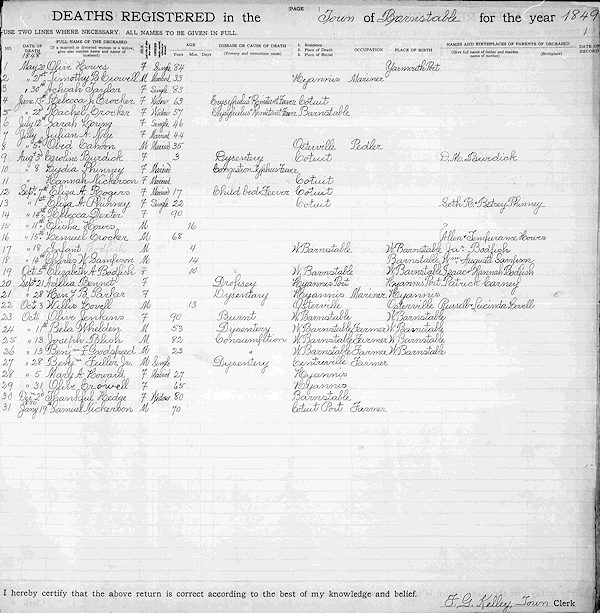 PAGE
DEATHS REGISTERED in the Town of Barnstable for the year 1849
USE TWO LINES WHERE NECESSARY. ALL NAMES TO BE GIVEN IN FULL. 1
NO. DATE OF DEATH 1848 FULL NAME OF THE DECEASED AGE Years Mos. Days DISEASE OR CAUSE OF DEATH (Primary and immediate cause) 1. Residence 2. Place of Death 3. Place of Burial OCCUPATION PLACE OF BIRTH NAMES AND BIRTHPLACES OF PARENTS OF DECEASED (Birthplace) DATE OF RECORD
May 20 Olive Howes F Single 84 Yarmouth Port
2 " 21st Timothy B. Crowell M Married 33 Hyannis Mariner
3 " 30th Achsah Taylor F Single 83
4 June 13th Rebecca J. Crocker F Widow 63 Fever Cotuit
5 " 22d Rachel Crocker F Widow 57 Fever Barnstable
6 July 12th Sarah Young F Single 46
7 July Julian A. Nye F Married 44
8 " 5th Obed Cahoon M Married 35 Osterville Pedler
9 Aug 3d Caroline Burdick F 3 Dysentery Cotuit D. M. Burdick
10 " 8 Lydia Phinney F Married Congestion Typhus Fever
11 " Hannah Nickerson F Married Cotuit
12 Sept Eliza A. Rogers F Married 17 Child bed Fever Cotuit
13 " Eliza A. Phinney F Single 22 Cotuit Seth & Betsy Phinney
14 " 14th Rebecca Dexter F 90
15 " 11th Elisha Howes M 16
16 " 15th Lemuel Crocker M 68 Allen Temperance Howes
17 " 18 Infant M 4 W. Barnstable W. Barnstable Bodfish
18 " 14th Charles W. Sampson M 14 Barnstable Augusta Sampson
19 Oct 5th Elizabeth A. Bodfish F 10 W. Barnstable W. Barnstable Isaac & Hannah Bodfish
20 Sept 21 Julia Bennett F Dropsey Hyannis Port Hyannis Port Patrick Carney
21 " 28 Henry B. Parker F Dysentary Hyannis Mariner Hyannis
22 Oct 3 Willis Lovell M 13 Osterville Osterville Russell & Lucinda Lovell
23 Oct 1 Olive Jenkins F 90 Burnt W. Barnstable W. Barnstable
24 " 11th Bela Whelden M 53 Dysentery W. Barnstable Farmer W. Barnstable
25 " 13 Joseph Blish M 82 Consumption W. Barnstable Farmer W. Barnstable
26 " 13 Benj. F. Goodspeed M 23 " W. Barnstable Farmer W. Barnstable
27 " 28 Benj. Fuller, Jr. M Single Dysentery Centreville Farmer
28 " 5 Mary A. Howard F Married 27 Hyannis
29 " 31 Olive Crowell F 65 Hyannis
30 Dec 2d Thankful Hedge F Widow 80 Barnstable
1850
31 Jany 19th Samuel Nickerson M 70 Cotuit Port Farmer
I hereby certify that the above return is correct according to the best of my knowledge and belief.
F. G. Kelley, Town Clerk